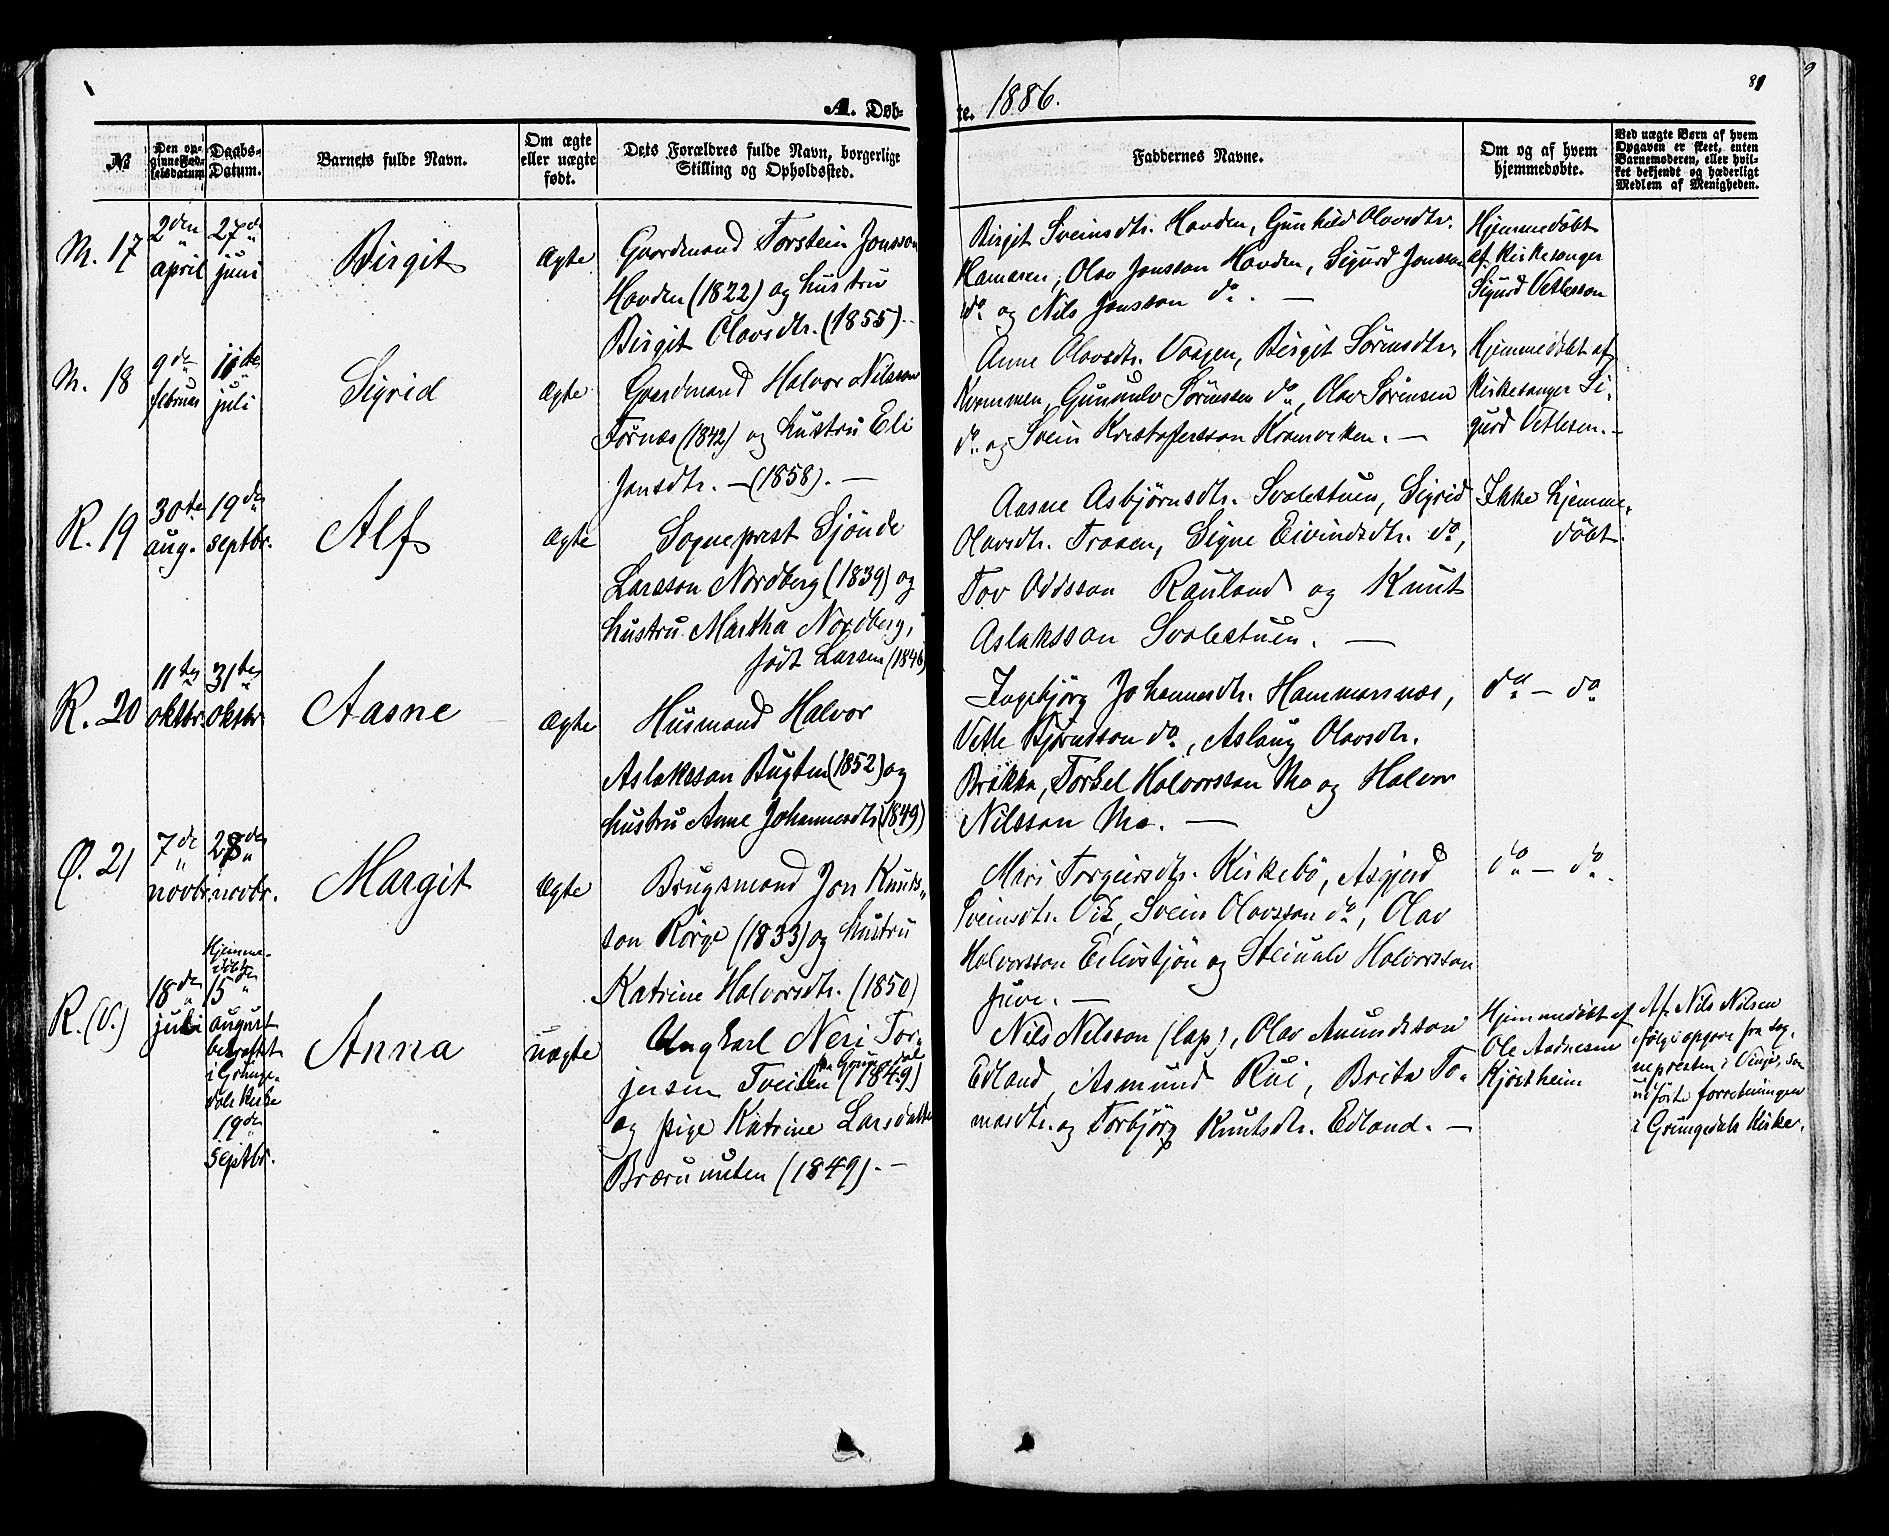 A. Døb-
te. 1886.
81
9
№
Den op-
givne Fød-
selsdatum.
Daabs-
Datum.
Barnets fulde Navn.
Om ægte
eller uægte
født.
Dets Forældres fulde Navn, borgerlige
Stilling og Opholdssted.
Faddernes Navne.
Om og af hvem
hjemmedøbte.
Ved uægte Børn af hvem
Opgaven er skeet, enten
Barnemoderen, eller hvil-
ket bekjendt og hæderligt
Medlem af Menigheden.
M. 17
2den
april
27de
juni
Birgit
ægte
Gaardmand Torstein Jonsson
Hovden (1822) og hustru
Birgit Olavsdtr. (1855).
Birgit Sveinsdtr. Hovden, Gunhild Olavsdtr.
Hameren, Olav Jonsson Hovden, Sigurd Jonsson
do og Nils Jonsson do. —
Hjemmedöbt
af Kirkesanger
Sigurd Vetleson
M. 18
9de
februar
11te
juli
Sigrid
ægte
Gaardmand Halvor Nilsson
Förnæs (1842) og hustru Eli
Jonsdtr. — (1858). —
Anne Olavsdtr. Vaagen, Birgit Sörensdtr.
Kvammen, Gunnulv Sörenssen do, Olav Sörensen
do og Svein Kristofersson Kromviken. —
Hjemmedöbt af
Kirkesanger Si-
gurd Vetleson. —
R. 19
30te
aug.
19de
septbr.
Alf
ægte
Sogneprest Sjönde
Larsson Nordberg (1839) og
hustru Martha Nordberg,
födt Larsen (1846)
Aasne Asbjörnsdtr. Svalestuen, Sigrid
Olavsdtr. Traaen, Signe Eivindsdtr. do,
Tov Oddsson Rauland og Knut
Aslaksson Svalestuen. —
Ikke hjemme-
döbt.
R. 20
11te
oktbr.
31te
oktbr.
Aasne
ægte
Husmand Halvor
Aslaksson Bugten (1852) og
hustru Anne Johannesdtr. (1849)
Ingebjörg Johannesdtr. Hammarsnæs,
Vetle Björnsson do, Aslaug Olavsdtr.
Brækka, Torkel Halvorsson Mo og Halvor
Nilsson Mo. —
do — do
Ø. 21
7de
novbr.
28de
novbr.
Margit
ægte
Brugsmand Jon Knuts-
son Rörge (1833) og hustru
Katrine Halvorsdtr. (1850)
Mari Torgeirsdtr. Kirkebö, Asgjerd
Sveinsdtr. Vik, Svein Olavsson do, Olav
Halvorsson Eilivstjön og Steinulv Halvorsson
Juve. —
do — do.
R. (V.)
18de
juli
Hjemme-
döbt
15de
august
bekræftet
i Grunge-
dals Kirke
19de
Septbr.
Anna
uægte
Ungkarl Neri Tor-
jersen Tveiten fra Grungedal (1849)
og pige Katrine Larsdatter
Brærunuten (1849). —
Nils Nilsson (lap), Olav Amundsson
Edland, Asmund Rui, Brita To-
masdtr. og Torbjörg Knutsdtr. Edland. —
Hjemmedöbt af
Ole Aadnesen
Kjöstheim
Af Nils Nilsen
ifölge opgave fra sog-
nepresten i Vinje, som
udförte forretningen
i Grungedals Kirke.